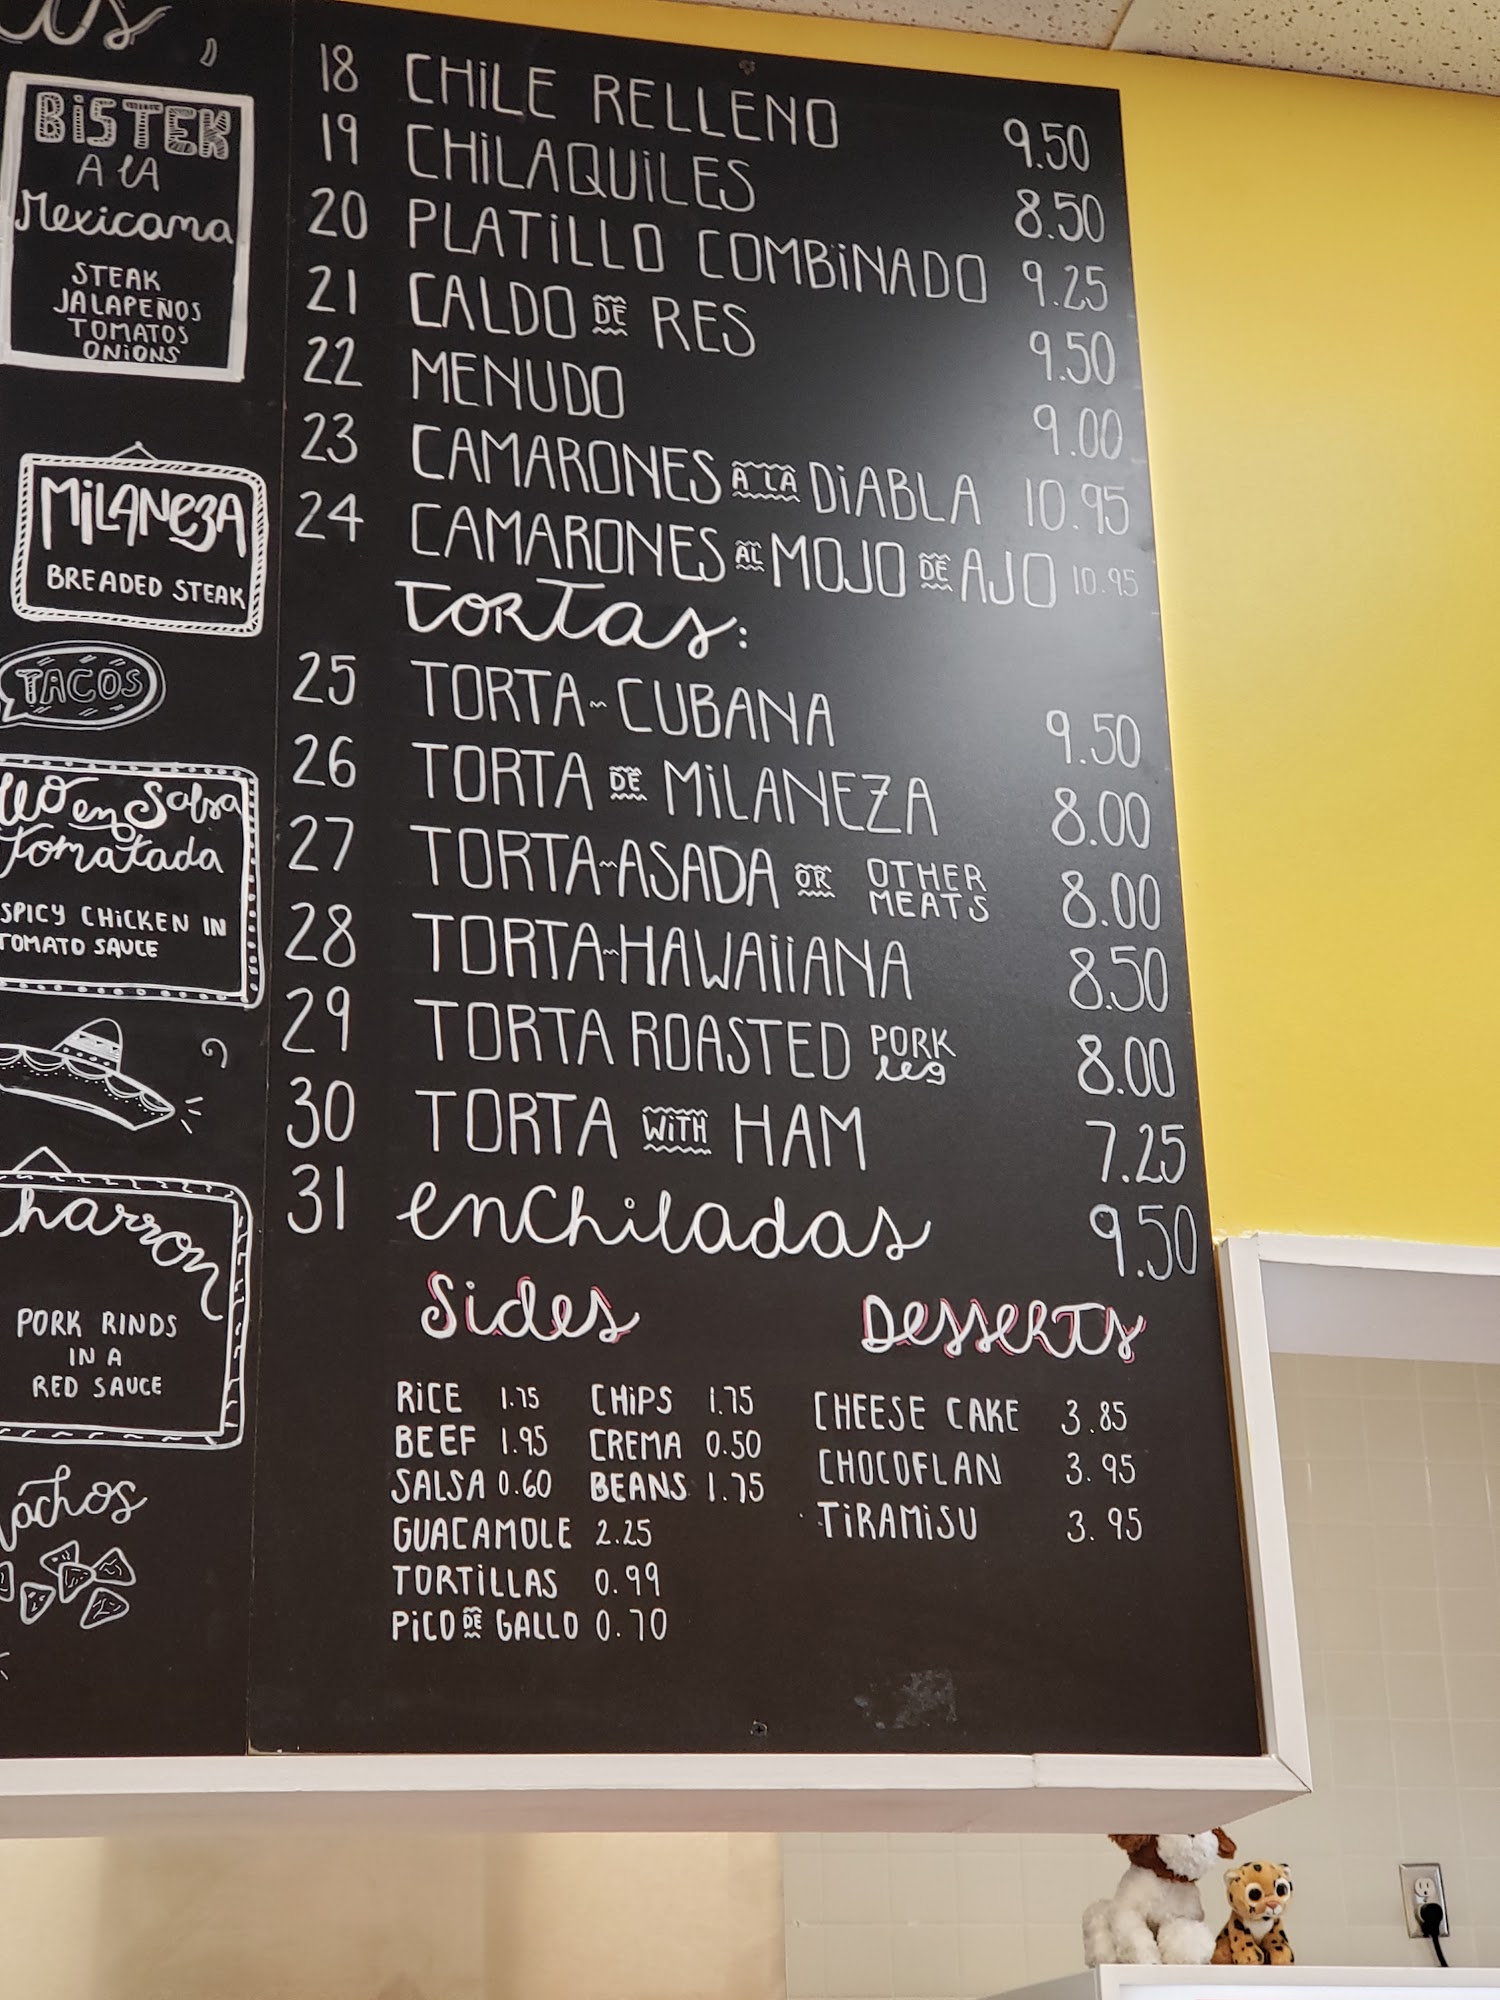 BiSTEK
A lA
Mexicana
STEAK
JALAPEÑOS
TOMATOS
ONiONS
MiLANeza
BREADED STEAK
TACOS
en Salsa
Tomatada
SPICY CHiCKEN IN
TOMATO SAUCE
PORK RINDS
IN A
RED SAUCE
18 CHiLE RELLENO 9.50
19 CHiLAQUiLES 8.50
20 PLATiLLO COMBiNADO 9.25
21 CALDO DE RES 9.50
22 MENUDO 9.00
23 CAMARONES A LA DiABLA 10.95
24 CAMARONES AL MOJO DE AJO 10.95
TORTas:
25 TORTA~CUBANA 9.50
26 TORTA DE MiLANEZA 8.00
27 TORTA~ASADA OR OTHER MEATS 8.00
28 TORTA~HAWAiiANA 8.50
29 TORTA ROASTED PORK leg 8.00
30 TORTA WiTH HAM 7.25
31 enChiladas 9.50
Sides
RiCE 1.75 CHiPS 1.75
BEEF 1.95 CREMA 0.50
SALSA 0.60 BEANS 1.75
GUACAMOLE 2.25
TORTiLLAS 0.99
PiCO DE GALLO 0.70
DesseRTs
CHEESE CAKE 3.85
CHOCOFLAN 3.95
TiRAMiSU 3.95